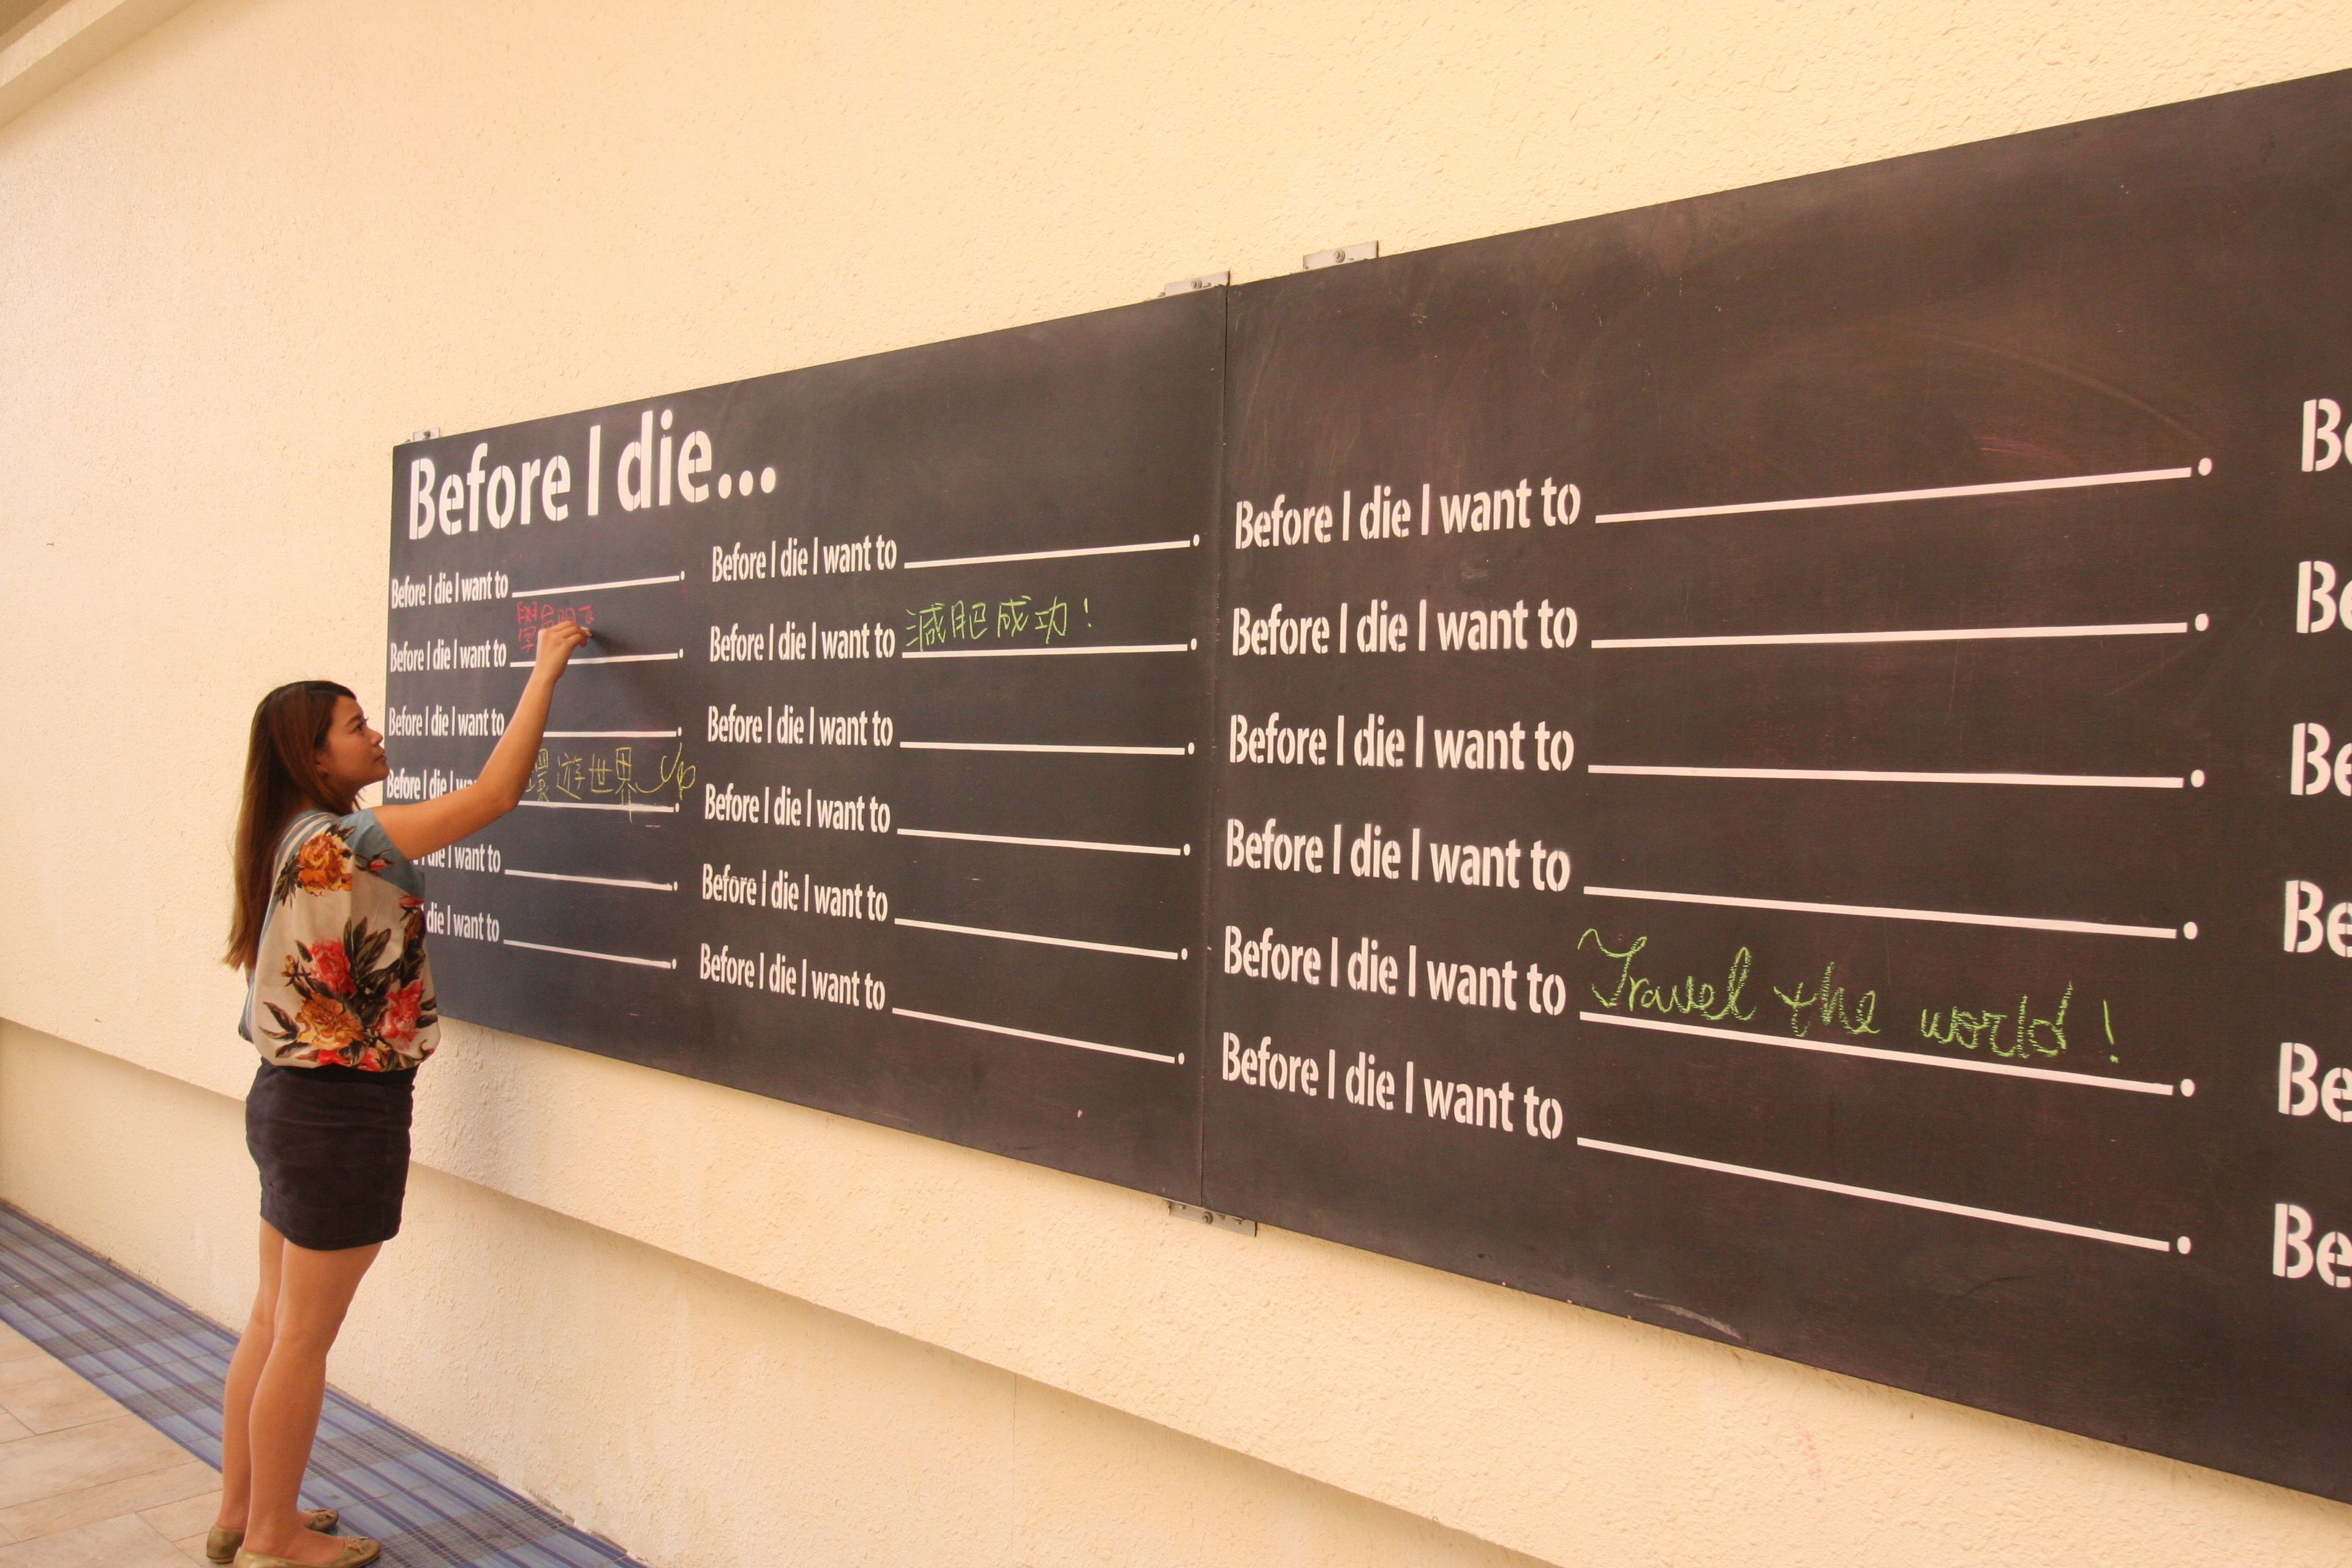 Before I die...
Before I die I want to
Before I die I want to 學會
Before I die I want to
Before I die I wa 環遊世界
die I want to
die I want to
Before I die I want to
Before I die I want to 減肥成功!
Before I die I want to
Before I die I want to
Before I die I want to
Before I die I want to
Before I die I want to
Before I die I want to
Before I die I want to
Before I die I want to
Before I die I want to Travel the world!
Before I die I want to
Be
Be
Be
Be
Be
Be